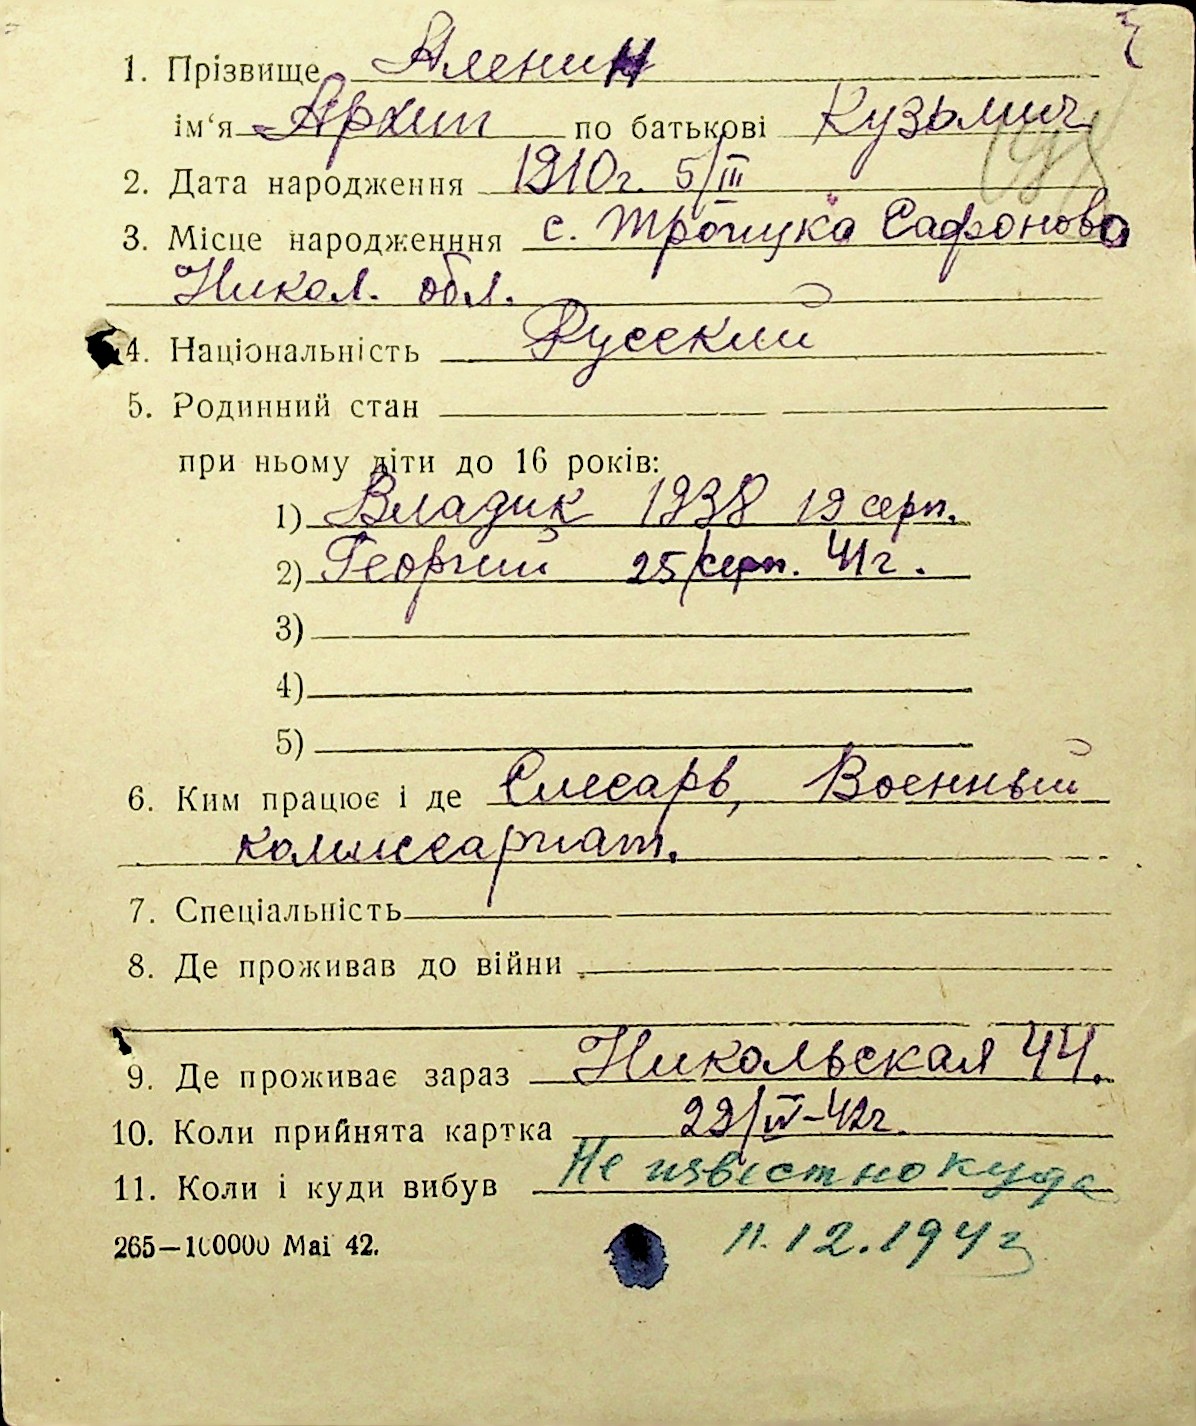 1. Прізвище Аленин
ім'я Архип по батькові Кузьмич
2. Дата народження 1910г. 5/III
3. Місце народженння с. Троицка Сафонова
Никол. обл.
4. Національність Русский
5. Родинний стан
при ньому діти до 16 років:
1) Владик 1938 19 серп.
2) Георгий 25/серп. 41г.
3)
4)
5)
6. Ким працює і де Слесарь, Военный
коммисариат.
7. Спеціальність
8. Де проживав до війни
9. Де проживає зараз Никольская 44.
10. Коли прийнята картка 22/IV-42г.
11. Коли і куди вибув Не известно куда
265—100000 Маі 42. 11.12.1942